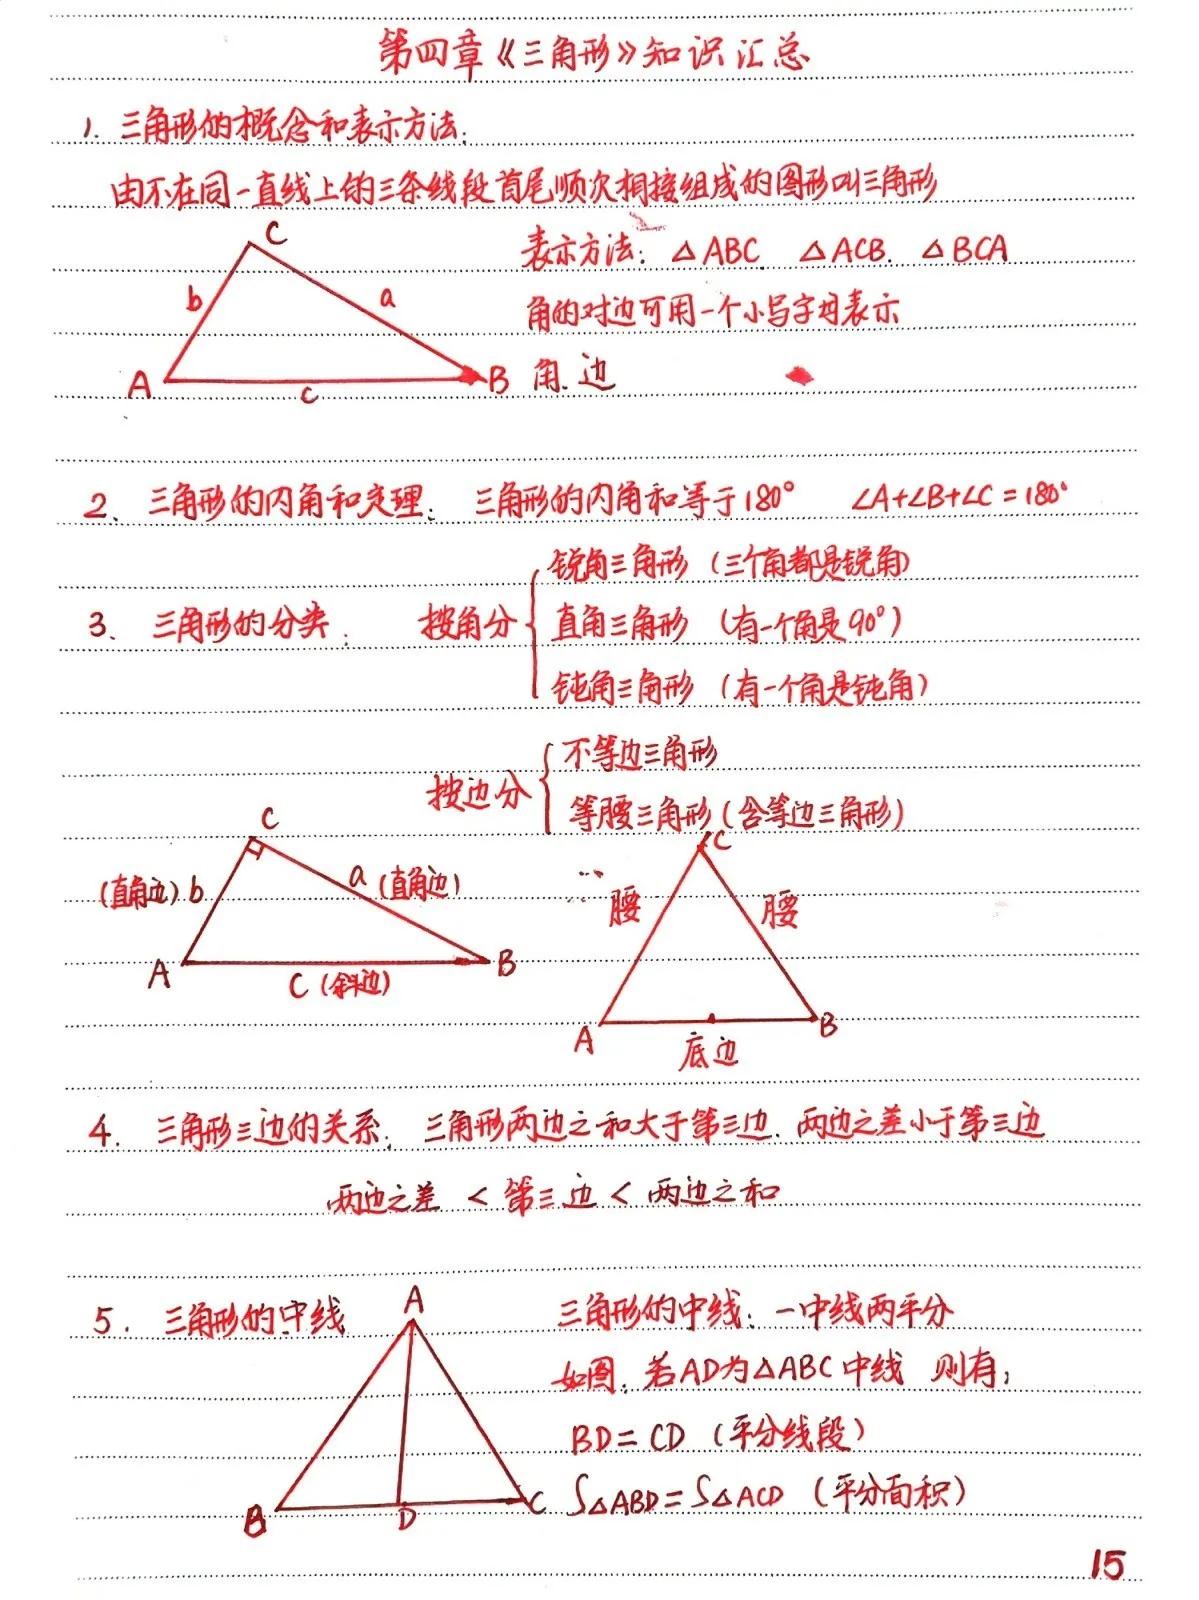 第四章《三角形》知识汇总
1. 三角形的概念和表示方法:
由不在同一直线上的三条线段首尾顺次相接组成的图形叫三角形
C
表示方法: △ABC △ACB. △BCA
b
a
角的对边可用一个小写字母表示
A
c
B
角. 边
2、三角形的内角和定理: 三角形的内角和等于180° ∠A+∠B+∠C=180°
锐角三角形 (三个角都是锐角)
3、三角形的分类: 按角分
直角三角形 (有一个角是90°)
钝角三角形 (有一个角是钝角)
不等边三角形
按边分
等腰三角形 (含等边三角形)
C
C
(直角边) b
a (直角边)
腰
腰
A
B
C (斜边)
A
B
底边
4. 三角形三边的关系: 三角形两边之和大于第三边. 两边之差小于第三边
两边之差 < 第三边 < 两边之和
A
5. 三角形的中线
三角形的中线: 一中线两平分
如图. 若AD为△ABC中线 则有:
BD=CD (平分线段)
B
D
C
S△ABD=S△ACD (平分面积)
15